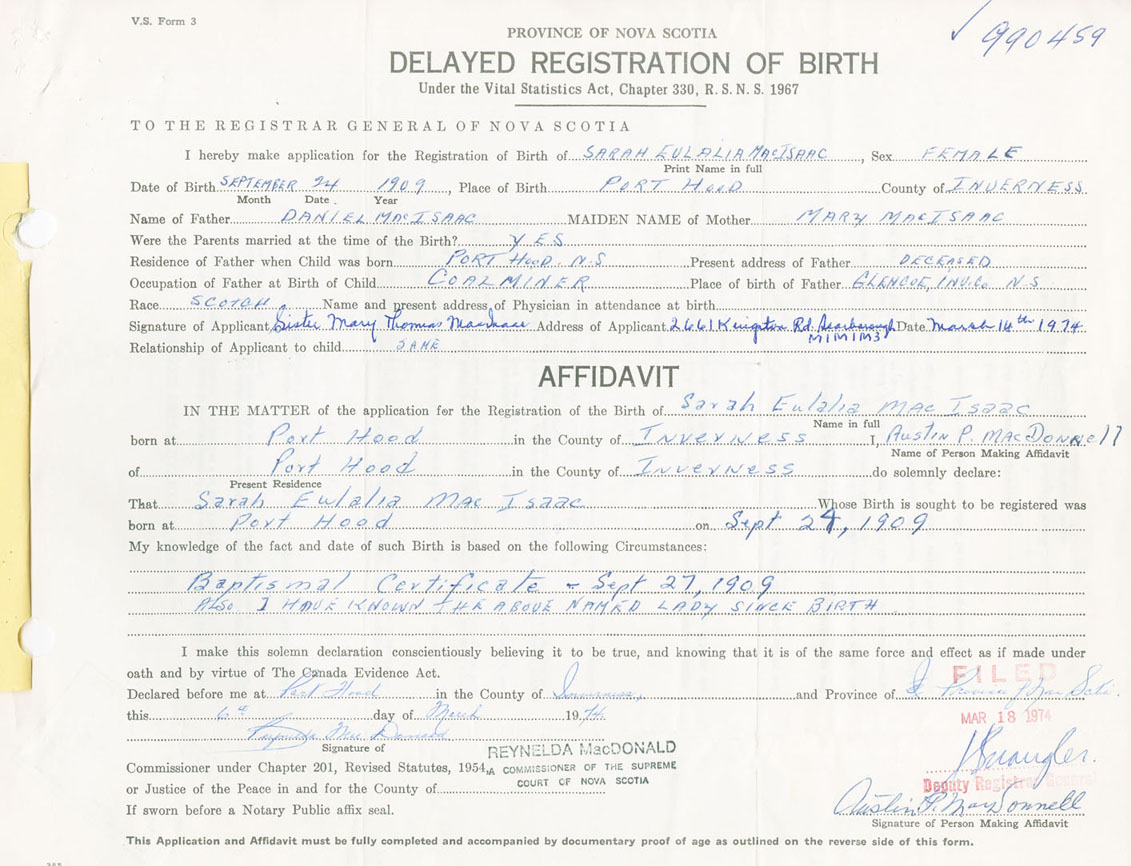 V.S. Form 3
✓ 990459
PROVINCE OF NOVA SCOTIA
DELAYED REGISTRATION OF BIRTH
Under the Vital Statistics Act, Chapter 330, R. S. N. S. 1967
TO THE REGISTRAR GENERAL OF NOVA SCOTIA
I hereby make application for the Registration of Birth of SARAH EULALIA MACISAAC, Sex FEMALE
Print Name in full
Date of Birth SEPTEMBER 24 1909, Place of Birth PORT HOOD County of INVERNESS
Month Date Year
Name of Father DANIEL MACISAAC MAIDEN NAME of Mother MARY MACISAAC
Were the Parents married at the time of the Birth? YES
Residence of Father when Child was born PORT HOOD. N.S Present address of Father DECEASED
Occupation of Father at Birth of Child COALMINER Place of birth of Father GLENCOE, INV.CO. N.S.
Race SCOTCH Name and present address of Physician in attendance at birth
Signature of Applicant Sister Mary Thomas MacIsaac Address of Applicant 2661 Kingston Rd. Scarborough Date March 14th 1974
M1M1M3
Relationship of Applicant to child SAME
AFFIDAVIT
IN THE MATTER of the application for the Registration of the Birth of Sarah Eulalia MAC ISaac
Name in full
born at Port Hood in the County of INverNess I, AUSTIN P. MACDONNell
Name of Person Making Affidavit
of Port Hood in the County of INverNess do solemnly declare:
Present Residence
That Sarah Eulalia MAC ISaac Whose Birth is sought to be registered was
born at Port Hood on Sept 24, 1909
My knowledge of the fact and date of such Birth is based on the following Circumstances:
Baptismal Certificate - Sept 27, 1909
ALSO I HAVE KNOWN THE ABOVE NAMED LADY SINCE BIRTH
I make this solemn declaration conscientiously believing it to be true, and knowing that it is of the same force and effect as if made under
oath and by virtue of The Canada Evidence Act.
FILED
Declared before me at Port Hood in the County of Inverness, and Province of Province of Nova Scotia.
this 6th day of March 1974.
MAR 18 1974
Reynelda MacDonald
Signature of
REYNELDA MacDONALD
Commissioner under Chapter 201, Revised Statutes, 1954, A COMMISSIONER OF THE SUPREME
COURT OF NOVA SCOTIA
Deputy Registrar General
or Justice of the Peace in and for the County of
Austin P. MacDonnell
If sworn before a Notary Public affix seal.
Signature of Person Making Affidavit
This Application and Affidavit must be fully completed and accompanied by documentary proof of age as outlined on the reverse side of this form.